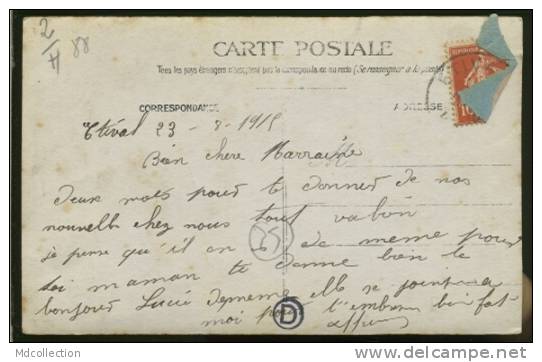 2/4 88
CARTE POSTALE
Tous les pays étrangers n'acceptent pas la correspondance au recto (Se renseigner à la poste)
CORRESPONDANCE
ADRESSE
Etival 23 - 8 - 1915
Bien chere Marraine
deux mots pour te donner de nos
nouvelle chez nous tout va bien
85
je pense qu'il en de meme pour
toi maman te donne bien le
bonjour Lucie de meme elle se joint a
moi pour t'embrasser bien fort
D
MdCollection
http://www.delcampe.net